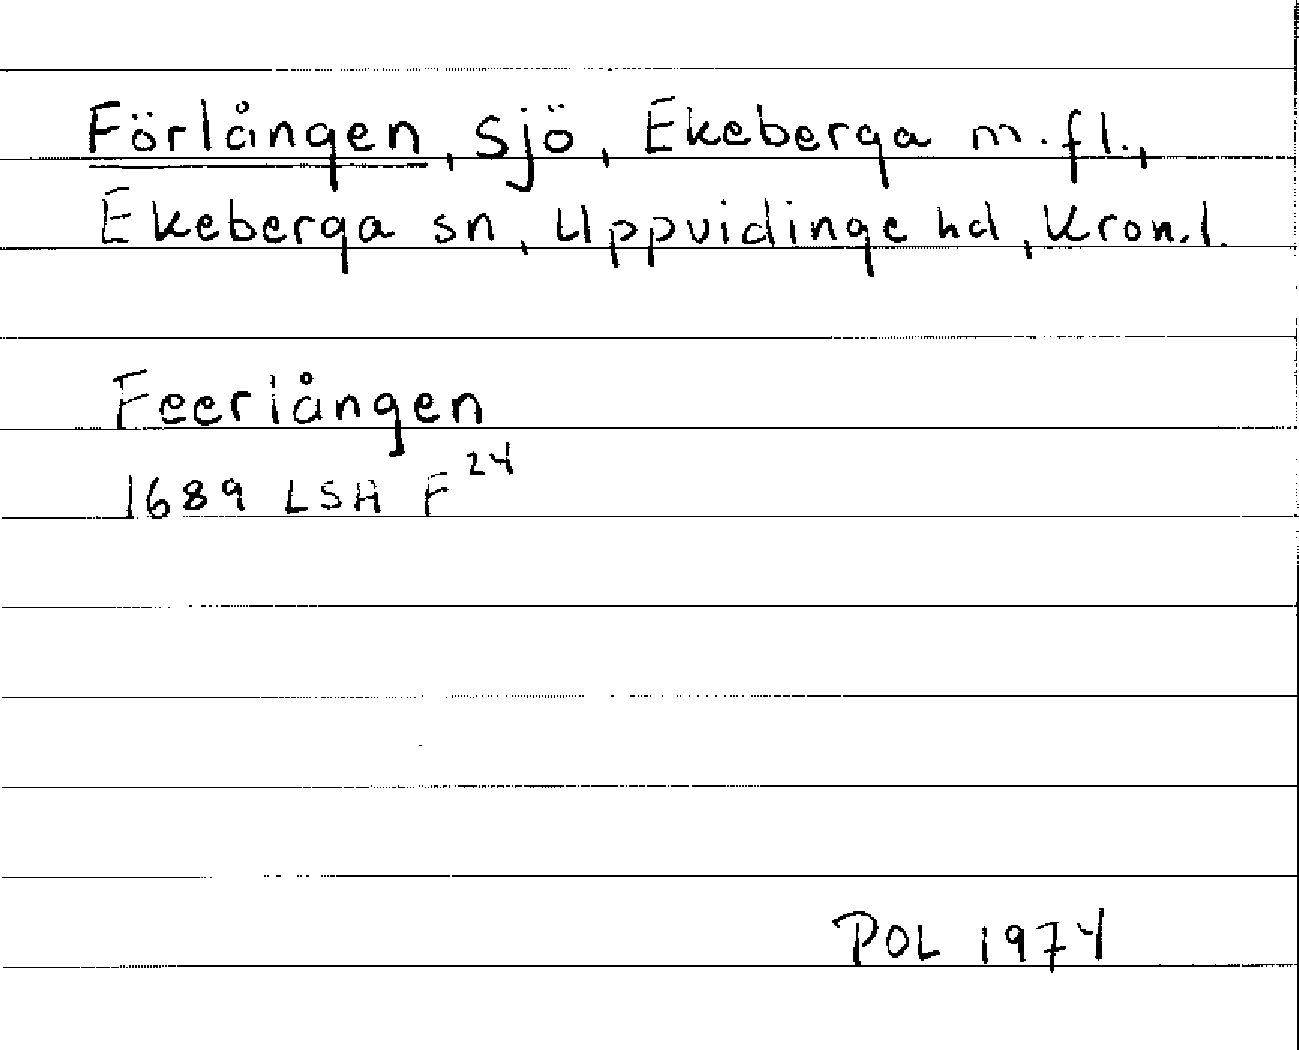 Förlången, sjö, Ekeberga m.fl.,
Ekeberga sn, Uppvidinge hd, Kron.l.
Feerlången
1689 LSH F 24
POL 1974